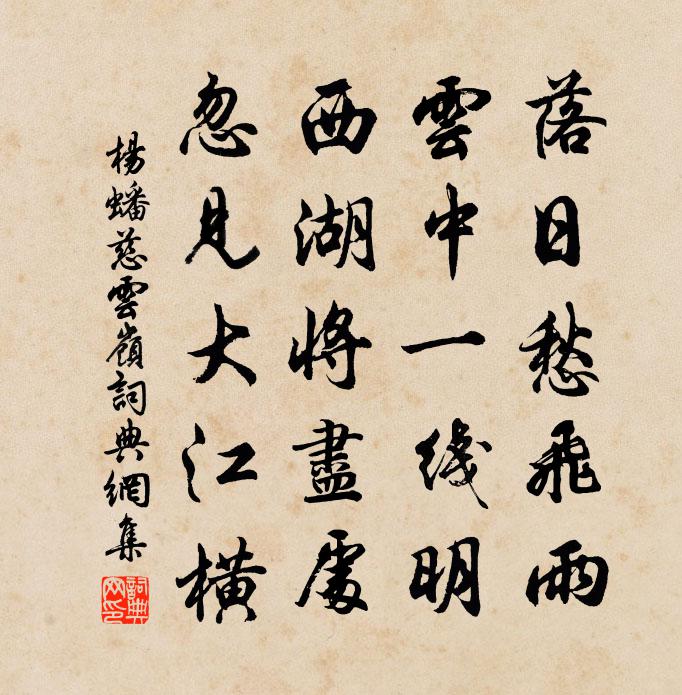 落日愁飛雨
雲中一綫明
西湖將盡處
忽見大江橫
楊蟠慈雲嶺詞典網集
詞典網印